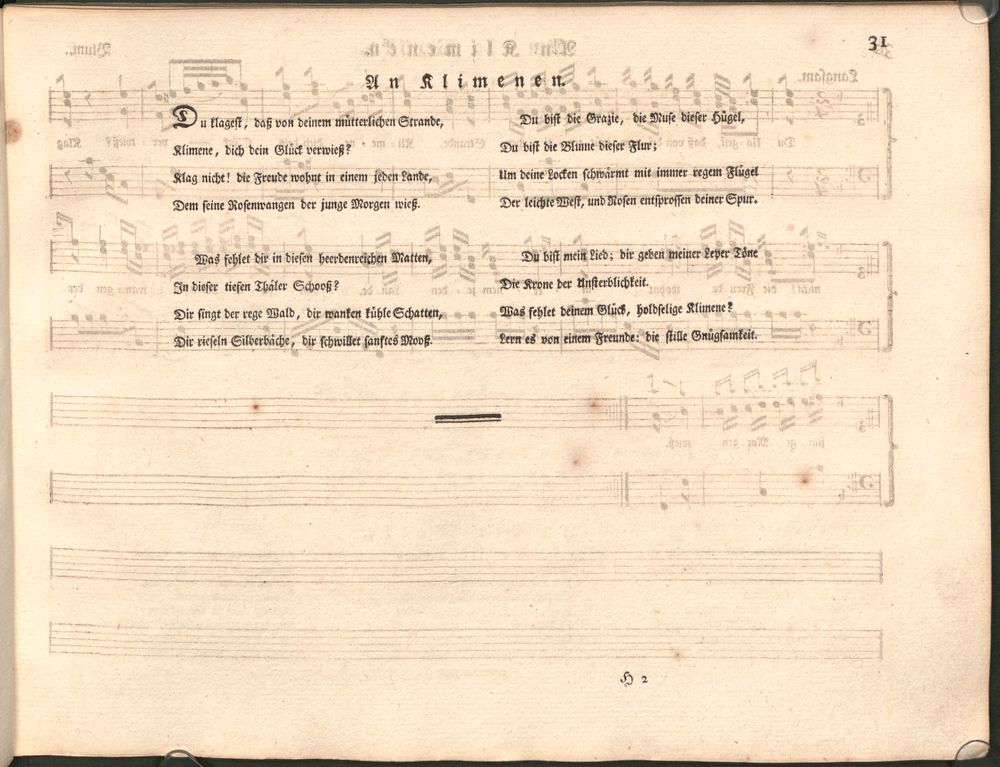 31
An Klimenen.
Du klagest, daß von deinem mütterlichen Strande,
Klimene, dich dein Glück verwieß?
Klag nicht! die Freude wohnt in einem jeden Lande,
Dem seine Rosenwangen der junge Morgen wieß.
Was fehlet dir in diesen heerdenreichen Matten,
In dieser tiefen Thäler Schooß?
Dir singt der rege Wald, dir wanken kühle Schatten,
Dir rieseln Silberbäche, dir schwillet sanftes Mooß.
Du bist die Grazie, die Muse dieser Hügel,
Du bist die Blume dieser Flur;
Um deine Locken schwärmt mit immer regem Flügel
Der leichte West, und Rosen entsprossen deiner Spur.
Du bist mein Lied; dir geben meiner Leyer Töne
Die Krone der Unsterblichkeit.
Was fehlet deinem Glück, holdselige Klimene?
Lern es von einem Freunde: die stille Gnügsamkeit.
H 2